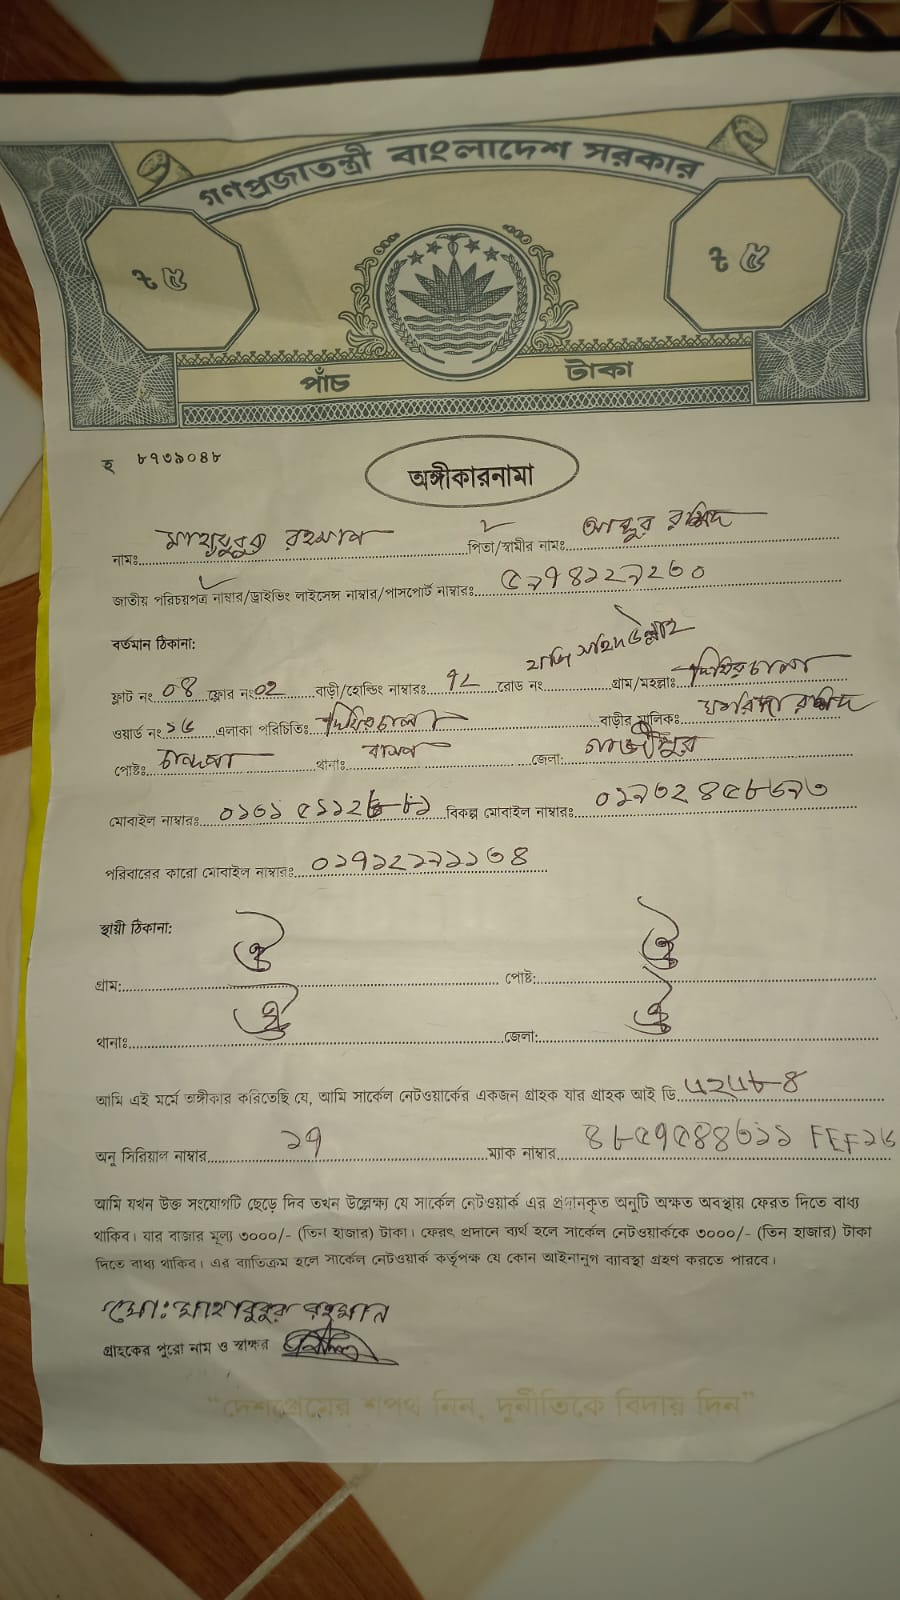 গণপ্রজাতন্ত্রী বাংলাদেশ সরকার
৳ ৫ ৳ ৫
পাঁচ টাকা
হ ৮৭৩৯০৪৮
অঙ্গীকারনামা
নামঃ মাহাবুবুর রহমান পিতা/স্বামীর নামঃ আব্দুর রশিদ
জাতীয় পরিচয়পত্র নাম্বার/ড্রাইভিং লাইসেন্স নাম্বার/পাসপোর্ট নাম্বারঃ
বর্তমান ঠিকানা:
ফ্লাট নং ০৪ ফ্লোর নং ০২ বাড়ী/হোল্ডিং নাম্বারঃ রোড নং হাজি সহিদ উল্লাহ গ্রাম/মহল্লাঃ দিঘিরচালা
ওয়ার্ড নং ১৬ এলাকা পরিচিতিঃ দিঘিরচালা বাড়ীর মালিকঃ রশিদ
পোষ্টঃ চান্দনা থানাঃ বাসন জেলা: গাজীপুর
মোবাইল নাম্বারঃ বিকল্প মোবাইল নাম্বারঃ
পরিবারের কারো মোবাইল নাম্বারঃ ০১৭১২১৯১১৩৪
স্থায়ী ঠিকানা:
গ্রাম: ঐ পোষ্ট: ঐ
থানাঃ ঐ জেলা: ঐ
আমি এই মর্মে অঙ্গীকার করিতেছি যে, আমি সার্কেল নেটওয়ার্কের একজন গ্রাহক যার গ্রাহক আই ডি
অনু সিরিয়াল নাম্বার ১৭ ম্যাক নাম্বার
আমি যখন উক্ত সংযোগটি ছেড়ে দিব তখন উল্লেক্ষ্য যে সার্কেল নেটওয়ার্ক এর প্রদানকৃত অনুটি অক্ষত অবস্থায় ফেরত দিতে বাধ্য
থাকিব। যার বাজার মূল্য ৩০০০/- (তিন হাজার) টাকা। ফেরৎ প্রদানে ব্যর্থ হলে সার্কেল নেটওয়ার্ককে ৩০০০/- (তিন হাজার) টাকা
দিতে বাধ্য থাকিব। এর ব্যতিক্রম হলে সার্কেল নেটওয়ার্ক কর্তৃপক্ষ যে কোন আইনানুগ ব্যাবস্থা গ্রহণ করতে পারবে।
মো: মাহাবুবুর রহমান
গ্রাহকের পুরো নাম ও স্বাক্ষর
"দেশপ্রেমের শপথ নিন, দুর্নীতিকে বিদায় দিন"